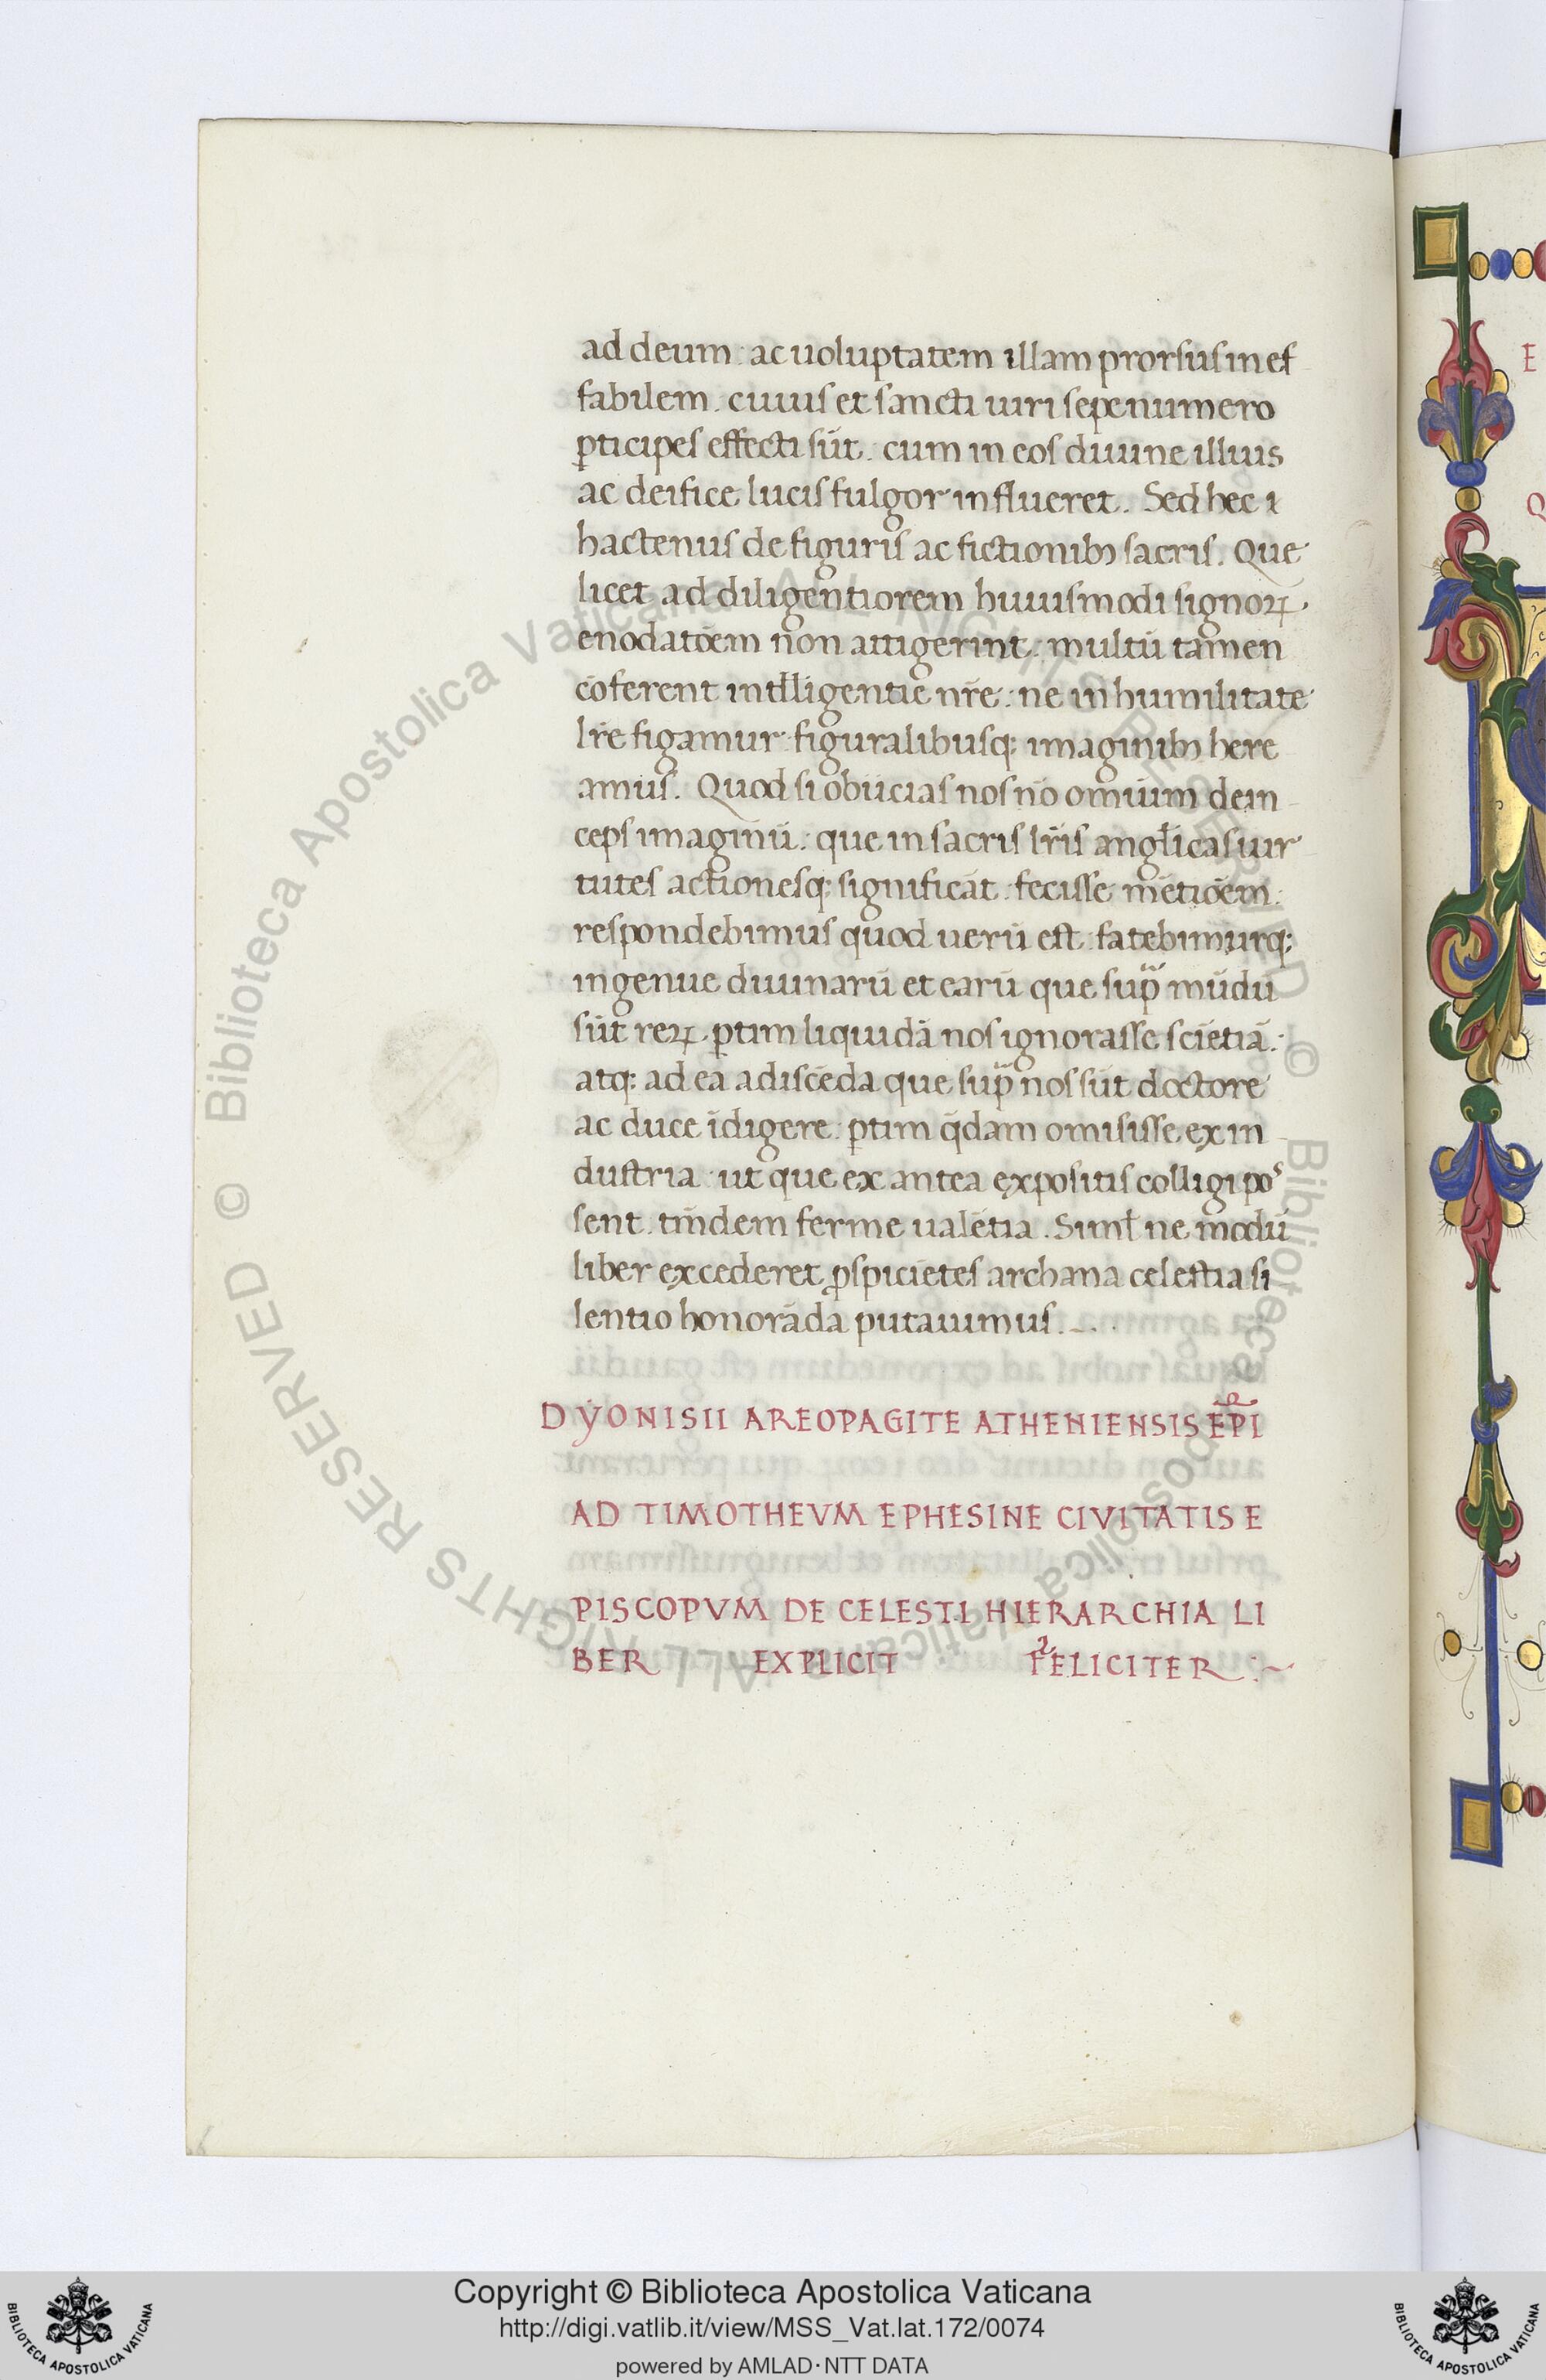 ad deum: ac uoluptatem illam prorsus in ef
fabilem. cuius et sancti uiri sepenumero
ꝑticipes effecti sūt: cum in eos diuine illius
ac deifice lucis fulgor influeret. Sed hec i
hactenus de figuris ac fictionibꝫ sacris. Que
licet ad diligentiorem huiusmodi signoꝝ
enodatōem non attigerint: multū tamen
cōferent intłligentie nr̄e: ne in humilitate
lr̄e figamur figuralibusqꝫ imaginibꝫ here
amus. Quod si obiicias nos nō omīum dein
ceps imaginū: que in sacris lr̄is angłicas uir
tutes actionesqꝫ significāt fecisse mētiōem:
respondebimus quod uerū est: fatebimurqꝫ
ingenue diuinarū et earū que supᵃ mūdū
sūt reꝝ. ꝑtim liquidā nos ignorasse sciētiā:
atqꝫ ad ea adiscēda que supᵃ nos sūt doctore
ac duce īdigere: ꝑtim q̄dam omisisse ex in
dustria: ut que ex antea expositis colligi pos
sent. tm̄dem ferme ualētia. Simł ne modū
liber excederet ꝓspiciētes archana celestia si
lentio honorāda putauimus.
DYONISII AREOPAGITE ATHENIENSIS EP̄I
AD TIMOTHEVM EPHESINE CIVITATIS E
PISCOPVM DE CELESTI HIERARCHIA LI
BER EXPLICIT FELICITER :~
E
Q
© Biblioteca Apostolica Vaticana ALL RIGHTS RESERVED © Biblioteca Apostolica Vaticana ALL RIGHTS RESERVED
Copyright © Biblioteca Apostolica Vaticana
http://digi.vatlib.it/view/MSS_Vat.lat.172/0074
powered by AMLAD·NTT DATA
BIBLIOTECA APOSTOLICA VATICANA
BIBLIOTECA APOSTOLICA VATICANA